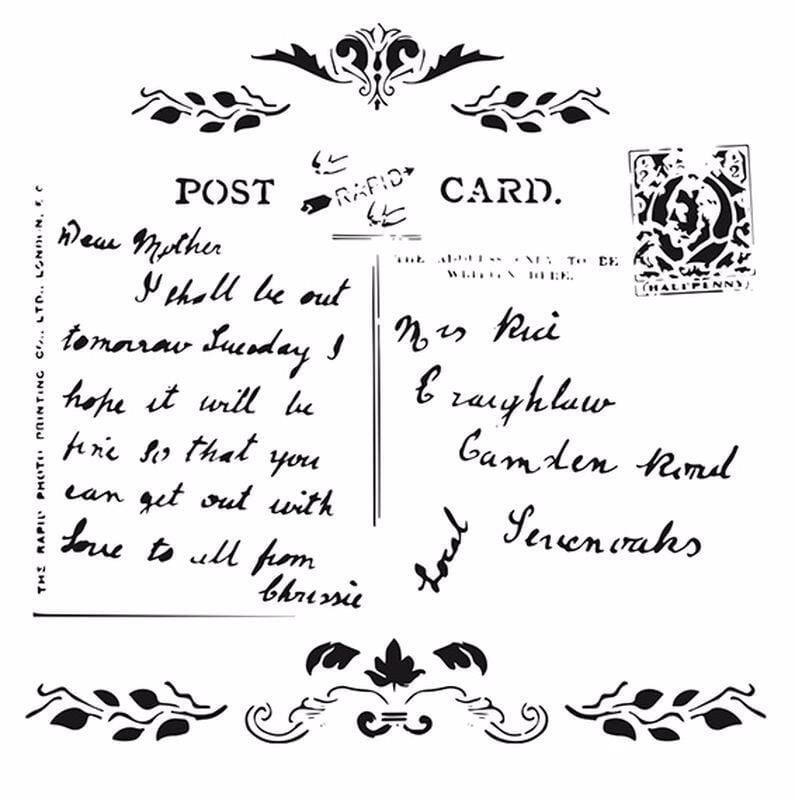 POST RAPID CARD.
1/2 1/2
HALFPENNY
THE RAPID PHOTO PRINTING CO., LTD., LONDON, E.C
Dear Mother
I shall be out
tomorrow Tuesday I
hope it will be
fine so that you
can get out with
Love to all from
Chrissie
THE ADDRESS ONLY TO BE
WRITTEN HERE.
Mrs Rice
Craighlaw
Camden Road
Sevenoaks
Local